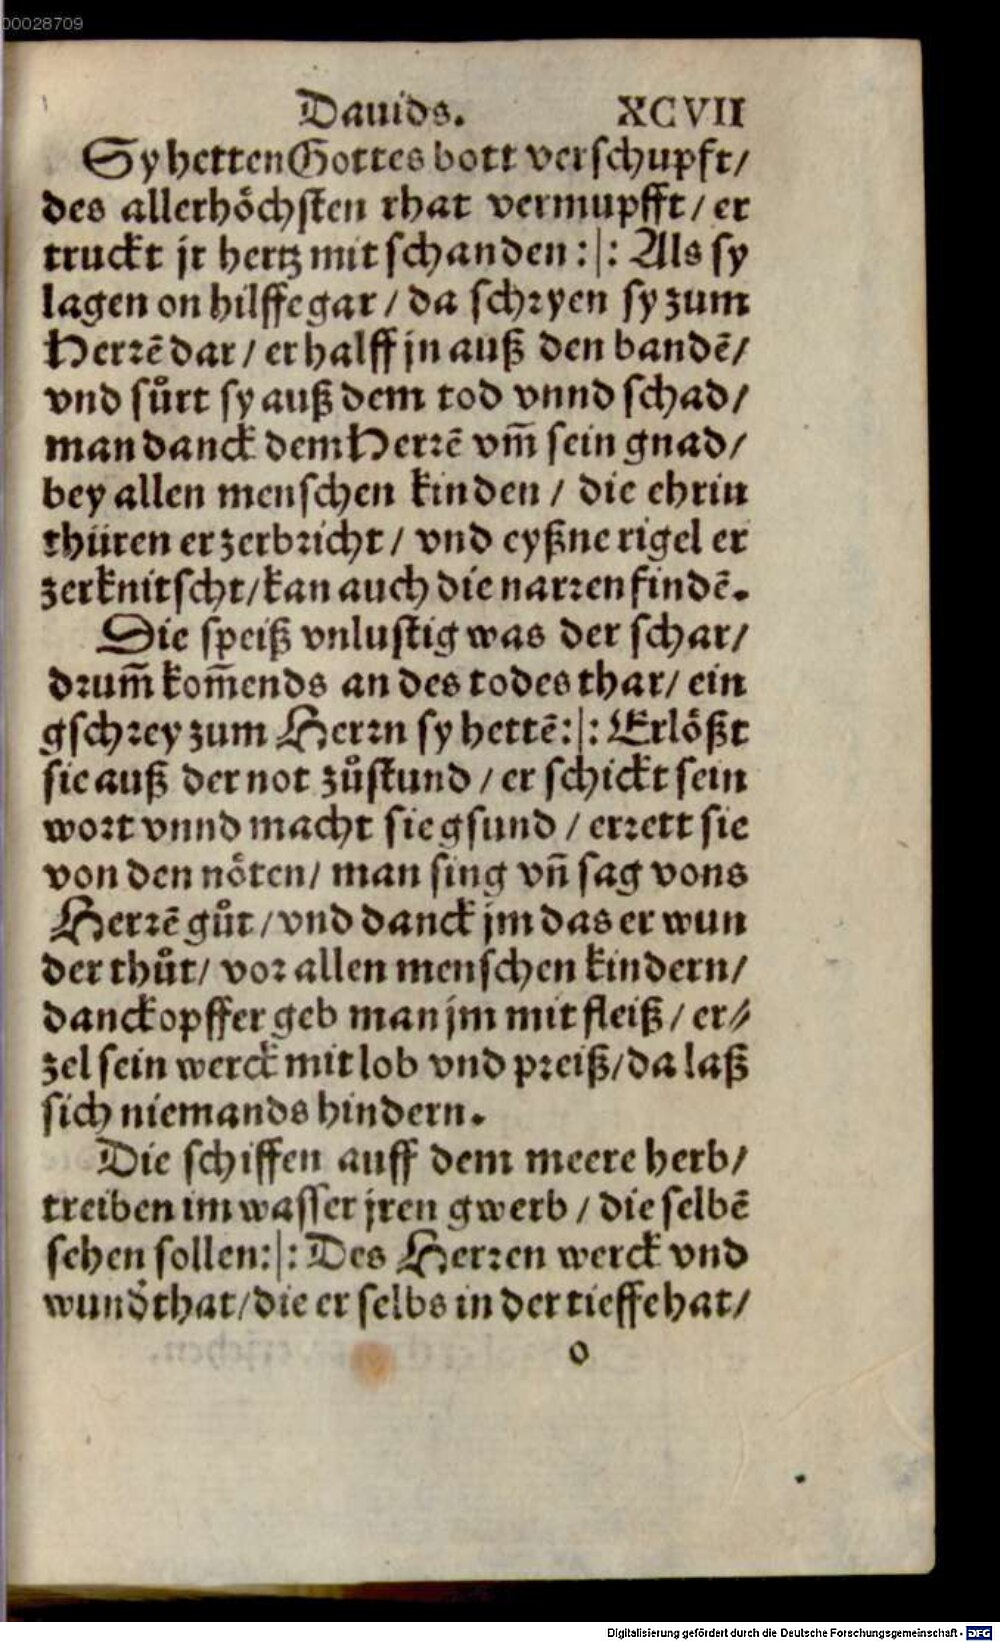 00028709
Dauids. XCVII
Sy hetten Gottes bott verschupft/
des allerhöchsten rhat vermupfft / er
truckt jr hertz mit schanden :|: Als sy
lagen on hilffe gar / da schryen sy zum
Herrē dar / er halff jn auß den bandē/
vnd fůrt sy auß dem tod vnnd schad/
man danck dem Herrē vm̄ sein gnad/
bey allen menschen kinden / die ehrin
thüren er zerbricht / vnd eyßne rigel er
zerknitscht/kan auch die narren findē.
Die speiß vnlustig was der schar/
drum̄ kom̄ends an des todes thar/ ein
gschrey zum Herrn sy hettē:|: Erlößt
sie auß der not zůstund / er schickt sein
wort vnnd macht sie gsund / errett sie
von den nöten/ man sing vn̄ sag vons
Herrē gůt / vnd danck jm das er wun
der thůt/ vor allen menschen kindern/
danckopffer geb man jm mit fleiß / er⸗
zel sein werck mit lob vnd preiß/da laß
sich niemands hindern.
Die schiffen auff dem meere herb/
treiben im wasser jren gwerb / die selbē
sehen sollen:|: Des Herren werck vnd
wundð that/die er selbs in der tieffe hat/
o
Digitalisierung gefördert durch die Deutsche Forschungsgemeinschaft - DFG